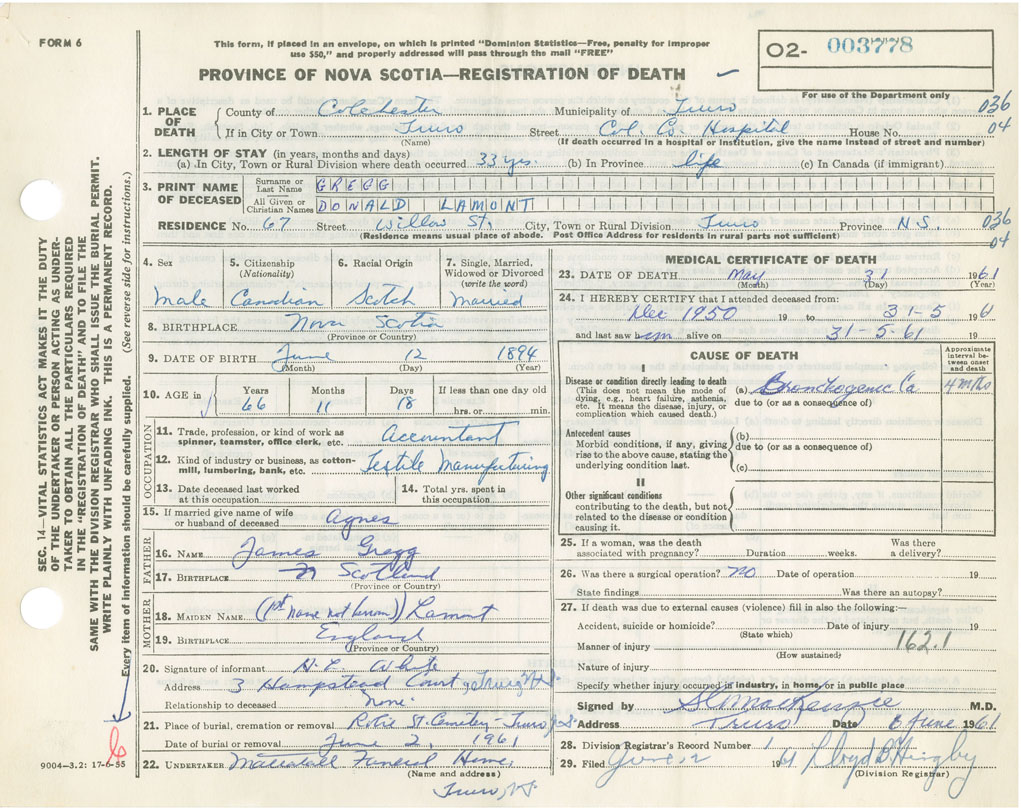 FORM 6
This form, if placed in an envelope, on which is printed "Dominion Statistics—Free, penalty for improper
use $50," and properly addressed will pass through the mail "FREE"
O2- 003778
For use of the Department only
PROVINCE OF NOVA SCOTIA—REGISTRATION OF DEATH
1. PLACE OF DEATH County of Colchester Municipality of Truro 036
If in City or Town Truro Street Col. Co. Hospital House No. 04
(Name) (If death occurred in a hospital or institution, give the name instead of street and number)
2. LENGTH OF STAY (in years, months and days)
(a) In City, Town or Rural Division where death occurred 33 yrs. (b) In Province life (c) In Canada (if immigrant)
3. PRINT NAME OF DECEASED
Surname or Last Name GREGG
All Given or Christian Names DONALD LAMONT
RESIDENCE No. 67 Street Willow St. City, Town or Rural Division Truro Province N.S. 036
04
(Residence means usual place of abode. Post Office Address for residents in rural parts not sufficient)
4. Sex Male
5. Citizenship (Nationality) Canadian
6. Racial Origin Scotch
7. Single, Married, Widowed or Divorced (write the word) Married
8. BIRTHPLACE Nova Scotia
(Province or Country)
9. DATE OF BIRTH June 12 1894
(Month) (Day) (Year)
10. AGE in Years 66 Months 11 Days 18 If less than one day old hrs. or min.
OCCUPATION
11. Trade, profession or kind of work as spinner, teamster, office clerk, etc. Accountant
12. Kind of industry or business, as cotton-mill, lumbering, bank, etc. Textile Manufacturing
13. Date deceased last worked at this occupation
14. Total yrs. spent in this occupation
15. If married give name of wife or husband of deceased Agnes
FATHER
16. NAME James Gregg
17. BIRTHPLACE Scotland
(Province or Country)
MOTHER
18. MAIDEN NAME (1st name not known) Lamont
19. BIRTHPLACE England
(Province or Country)
20. Signature of informant White
Address 3 Hampstead Court
Relationship to deceased None
21. Place of burial, cremation or removal St. Cemetery - Truro N.S.
Date of burial or removal June 2, 1961
22. UNDERTAKER Mattatall Funeral Home
(Name and address)
Truro, N.S.
MEDICAL CERTIFICATE OF DEATH
23. DATE OF DEATH May 31 1961
(Month) (Day) (Year)
24. I HEREBY CERTIFY that I attended deceased from:
Dec 1950 19 to 31-5 1961
and last saw him alive on 31-5-61 19
CAUSE OF DEATH
Approximate interval between onset and death
I
Disease or condition directly leading to death
(This does not mean the mode of dying, e.g., heart failure, asthenia, etc. It means the disease, injury, or complication which caused death.)
(a) Bronchogenic Ca 4 mths
due to (or as a consequence of)
Antecedent causes
Morbid conditions, if any, giving rise to the above cause, stating the underlying condition last.
(b)
due to (or as a consequence of)
(c)
II
Other significant conditions
contributing to the death, but not related to the disease or condition causing it.
25. If a woman, was the death associated with pregnancy? Duration weeks. Was there a delivery?
26. Was there a surgical operation? no Date of operation 19
State findings Was there an autopsy?
27. If death was due to external causes (violence) fill in also the following:—
Accident, suicide or homicide? Date of injury 19
(State which)
Manner of injury 162.1
(How sustained)
Nature of injury
Specify whether injury occurred in industry, in home, or in public place
Signed by MacKenzie M.D.
Address Truro Date 6 June 1961
28. Division Registrar's Record Number 1
29. Filed June 2 1961 Lloyd
(Division Registrar)
SEC. 14—VITAL STATISTICS ACT MAKES IT THE DUTY
OF THE UNDERTAKER OR PERSON ACTING AS UNDER-
TAKER TO OBTAIN ALL THE PARTICULARS REQUIRED
IN THE "REGISTRATION OF DEATH" AND TO FILE THE
SAME WITH THE DIVISION REGISTRAR WHO SHALL ISSUE THE BURIAL PERMIT.
WRITE PLAINLY WITH UNFADING INK. THIS IS A PERMANENT RECORD.
Every item of information should be carefully supplied. (See reverse side for instructions.)
6
9004-3.2: 17-6-55